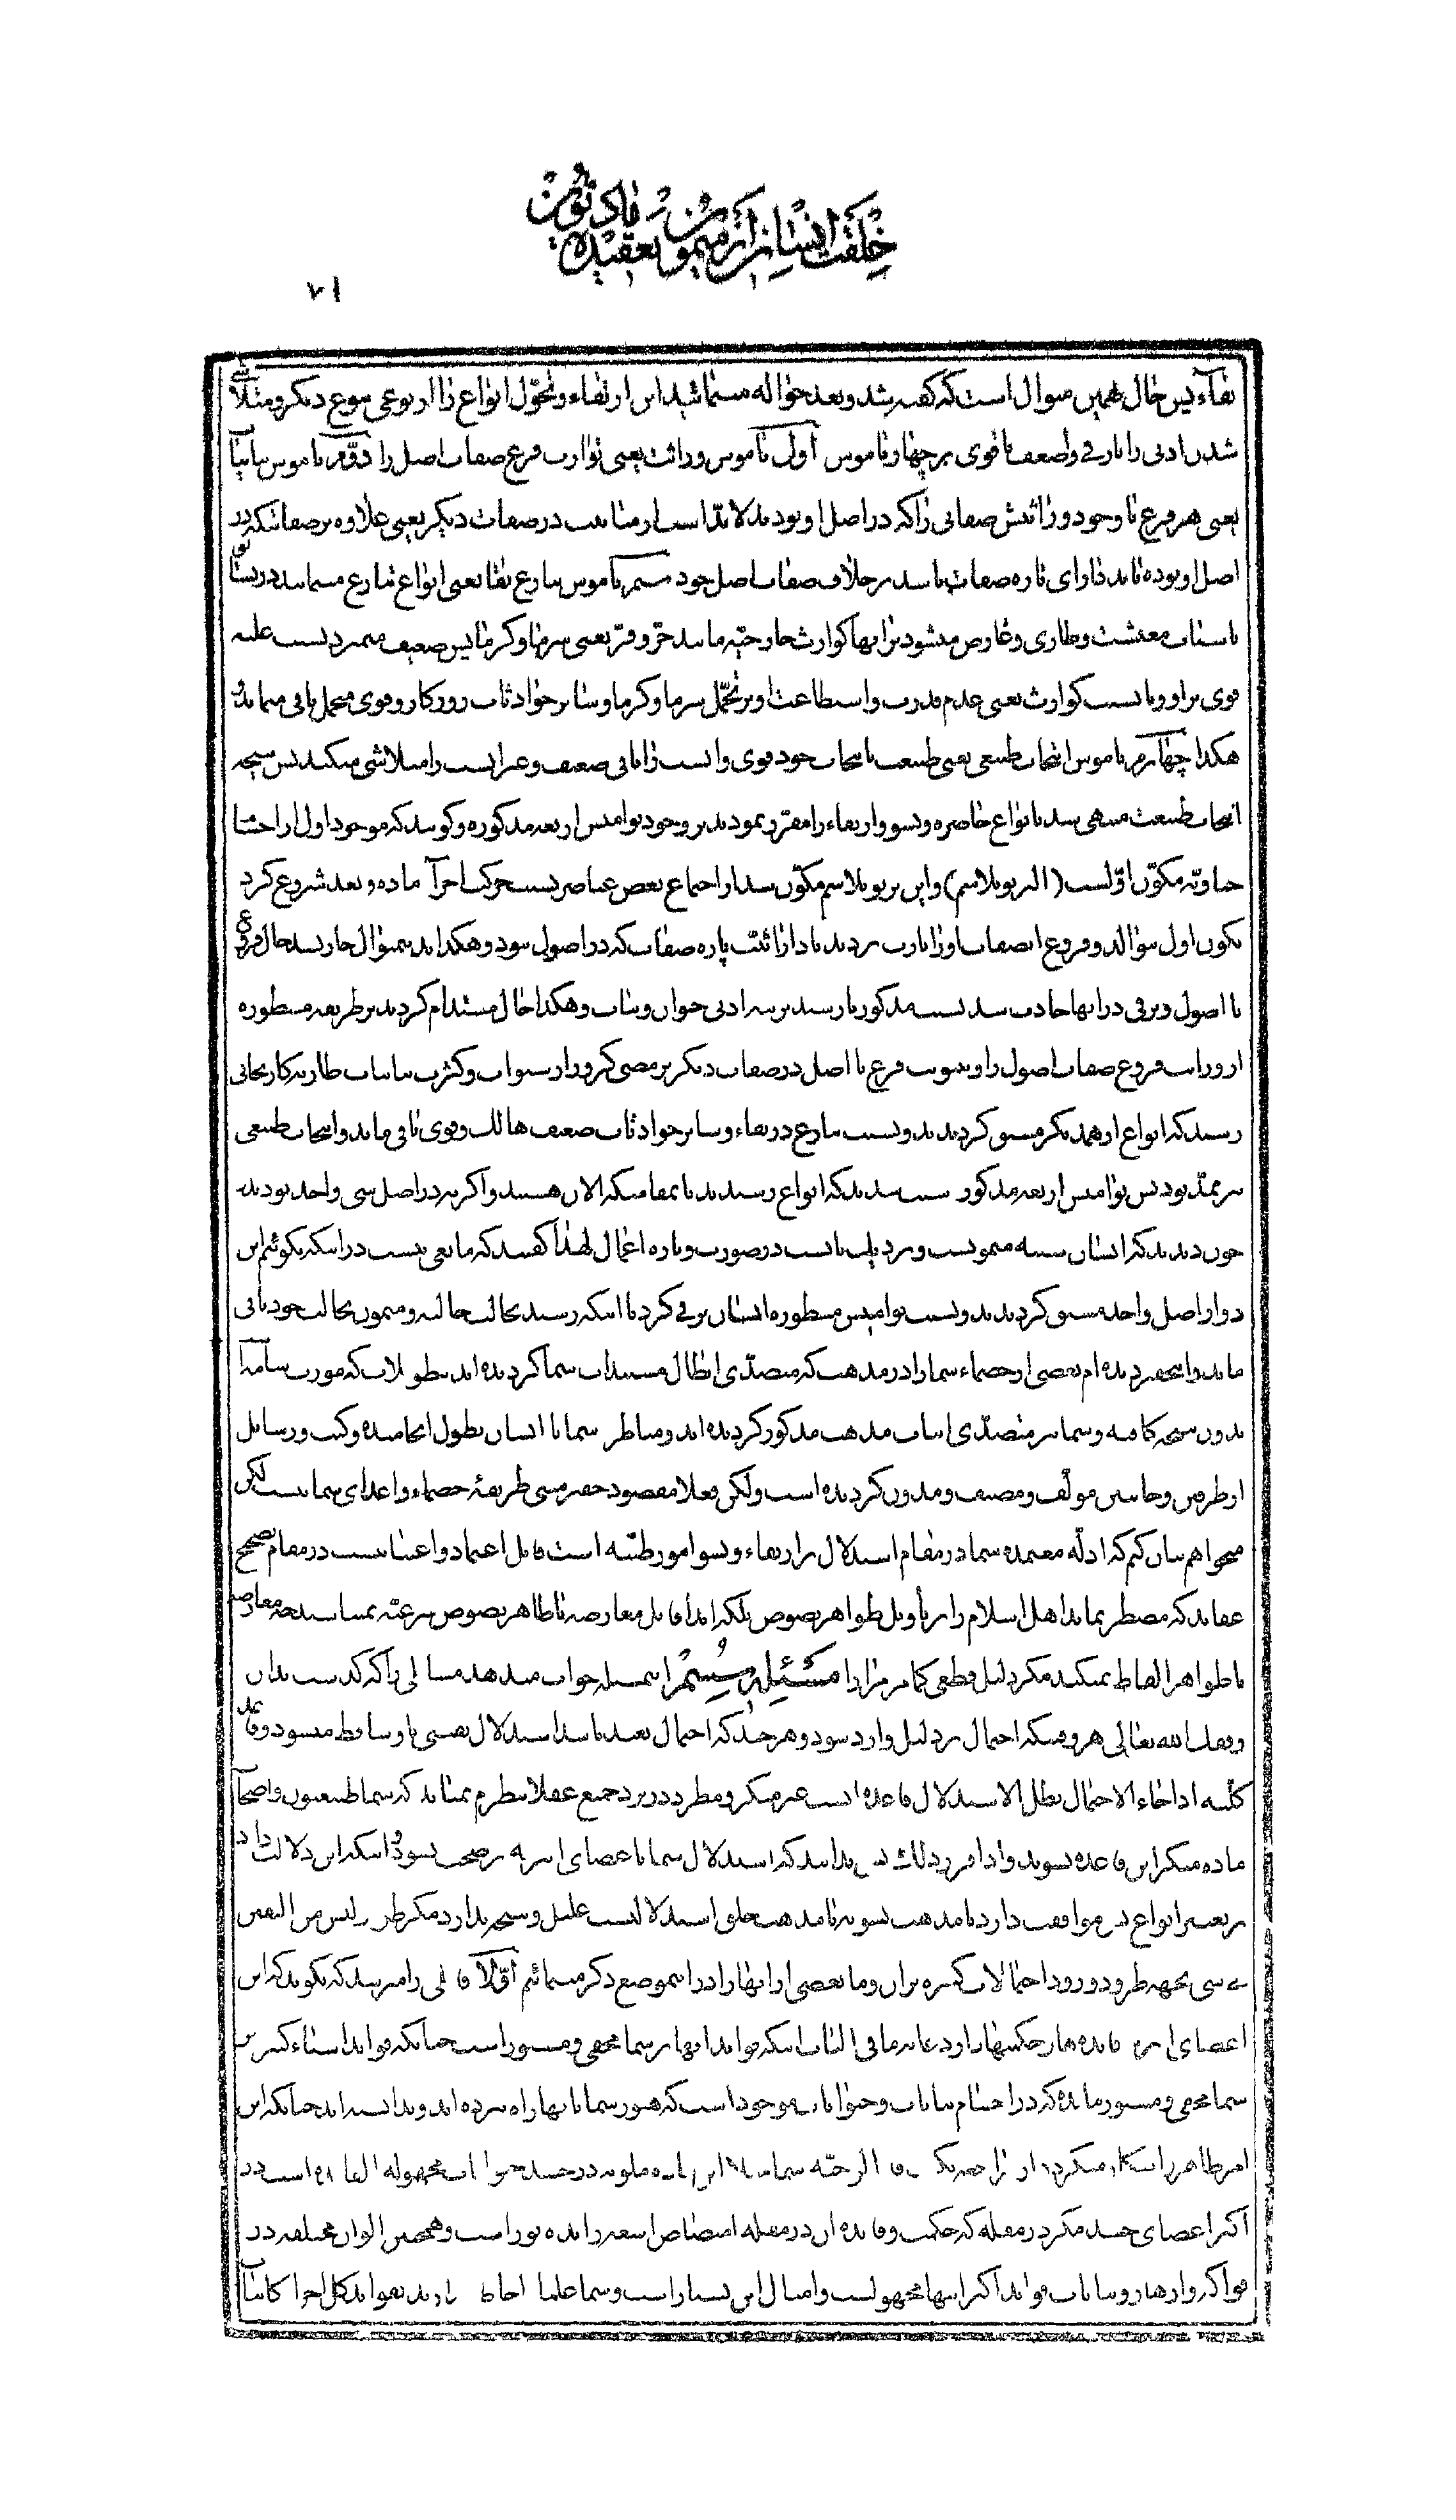 خلقت انسان از میمون بعقیده مادیون
۷۱
بقاء پس حال بهمین منوال است که گفته شد و بعد حواله مینمائید این ارتقاء و تحوّل انواع را از نوعی بنوع دیگر و متلاشی
شدن ادنی را بارقی و اضعف با قوی بر چهار ناموس اول ناموس وراثت یعنی توارث فرع صفات اصل را دوّم ناموس تباینات
یعنی هر فرع با وجود وراثتش صفاتی را که در اصل او بودند لابدّ است از مباینت در صفات دیگر یعنی علاوه بر صفاتیکه در
اصل او بوده باید دارای پاره صفات باشد بر خلاف صفات اصل خود سیّم ناموس تنازع بقا یعنی انواع تنازع مینمایند در بقا
باسباب معیشت و طاری و عارض میشود بر آنها کوارث خارجیّه مانند حرّ و قرّ یعنی سرما و گرما پس ضعیف میمیرد بسبب غلبه
قوی بر او و یا بسبب کوارث یعنی عدم قدرت و استطاعت او بر تحمّل سرما و گرما و سایر حوادثات روزگار و قوی متحمل باقی میماند و
هکذا چهارم ناموس انتخاب طبیعی یعنی طبیعت بانتخاب خود قوی و انسب را ابقا ضعیف و غیر انسب را متلاشی میکند پس نتیجه
انتخاب طبیعت منتهی شد بانواع حاضره و نشو و ارتقاء را مقرّر نمودند بر وجود نوامیس اربعه مذکوره و گویند که موجود اول از احیا
حیاویّه مکوّن اوّلست (البروتپلاسم) و این پروتپلاسم مکوّن شد از اجتماع بعض عناصر بسبب حرکت اجزاء ماده و بعد شروع کرد
مکون اول بتوالد و فروع اتصفات او را بارث بردند با دارائیّت پاره صفات که در اصول نبود و هکذا بدینمنوال جار شد حال فروع
با اصول و ترقی در آنها حادث شد بسبب مذکور تا رسید بمرتبه ادنی حیوان و نبات و هکذا حال مستدام گردید بر طریقه مسطوره
از وراثت فروع صفات اصول را و تباین فرع با اصل در صفات دیگر بر مضی کرور از سنوات و کثرت تباینات طاریه کار بجائی
رسید که انواع از همدیگر مشتق گردیدند و بسبب تنازع در بقاء و سایر حوادثات ضعیف هالک و قوی باقی ماند و انتخاب طبیعی
نیز ممدّ بود پس نوامیس اربعه مذکور سبب شدند که انواع رسیدند بمقامیکه الان هستند و اگر نه در اصل شیء واحد بودند
چون دیدند که انسان شبیه میمونست و نزدیک بآنست در صورت و پاره اعمال لهذا گفتند که مانعی نیست در اینکه بگوئیم این
دو از اصل واحد مشتق گردیدند و بسبب نوامیس مسطوره انسان ترقی کرد تا اینکه رسید بحالت حالیه و میمون بحالت خود باقی
ماند و اینحقیر دیده‌ام بعضی از خصماء شما را در مذهب که متصدّی ابطال مستندات شما گردیده‌اند بطولات که مورث سآمه
بدون نتیجه کافیه و شما نیز متصدّی اثبات مذهب مذکور گردیده‌اند و مناظره شما با ایشان بطول انجامیده و کتب و رسایل
از طرفین و جانبین مولّف و مصنف و مدون گردیده است ولکن فعلا مقصود حقیر مشی طریقهٔ خصماء و اعدای شما نیست لکن
میخواهم بیان کنم که ادلّه معتمده شما در مقام استدلال بر ارتقاء و نشو امور ظنّیه است قابل اعتماد و اعتنا نیست در مقام تصحیح
عقاید که مضطر نماید اهل اسلام را بر تأویل ظواهر نصوص بلکه ابدا قابل معارضه با ظاهر نصوص شرعیّه نمیباشد چه معارضه
با ظواهر الفاظ نمیکند مگر دلیل قطعی کما مر مرارا مسئله بیستم اینمسئله جواب میدهد مسائلی را که گذشت بدان
وفقک الله تعالی هر وقتیکه احتمال بر دلیل وارد شود و هر چند که احتمال بعید باشد استدلال یقینی باو ساقط میشود و قاعده
کلّیه اذا جاء الاحتمال بطل الاستدلال قاعده ایست غیر منکر و مطرد در نزد جمیع عقلا بنظرم نمیاید که شما طبیعیون و اصحاب
ماده منکر این قاعده شوید و اذا تقرر ذلک پس بدانید که استدلال شما باعضای اثریه صحیح نشود و اینکه این دلالت دارد
بر تغییر انواع پس موافقت دارد با مذهب نشو نه با مذهب خلق استدلالیست علیل و نتیجه ندارد مگر ظن و لیس من الیقین
بشیء بجهه طرو و ورود احتمالات کثیره بر آن و ما بعضی از آنها را در اینموضع ذکر مینمائیم اوّلا قائلی را میرسد که بگوید که این
اعضای اثریه فایده‌ها و حکمتها دارد غایة ما فی الباب اینکه فواید آنها بر شما مخفی و مستور است چنانکه فواید اشیاء کثیر بر
شما مخفی و مستور مانده که در اجسام نباتات و حیوانات موجود است که هنوز شما بآنها راه نبرده‌اند و ندانسته‌اند چنانکه این
اکثر اعضای جسد مگر در مقله که حکمت و فایده آن در مقله امتصاص اشعه زایده نور است و همچنین الوان مختلفه در
فواکه و ازهار و نباتات فواید اکثر اینها مجهولست و امثال این بسیار است و شما علما احاطه ندارید بفواید کل اجزا کائنات